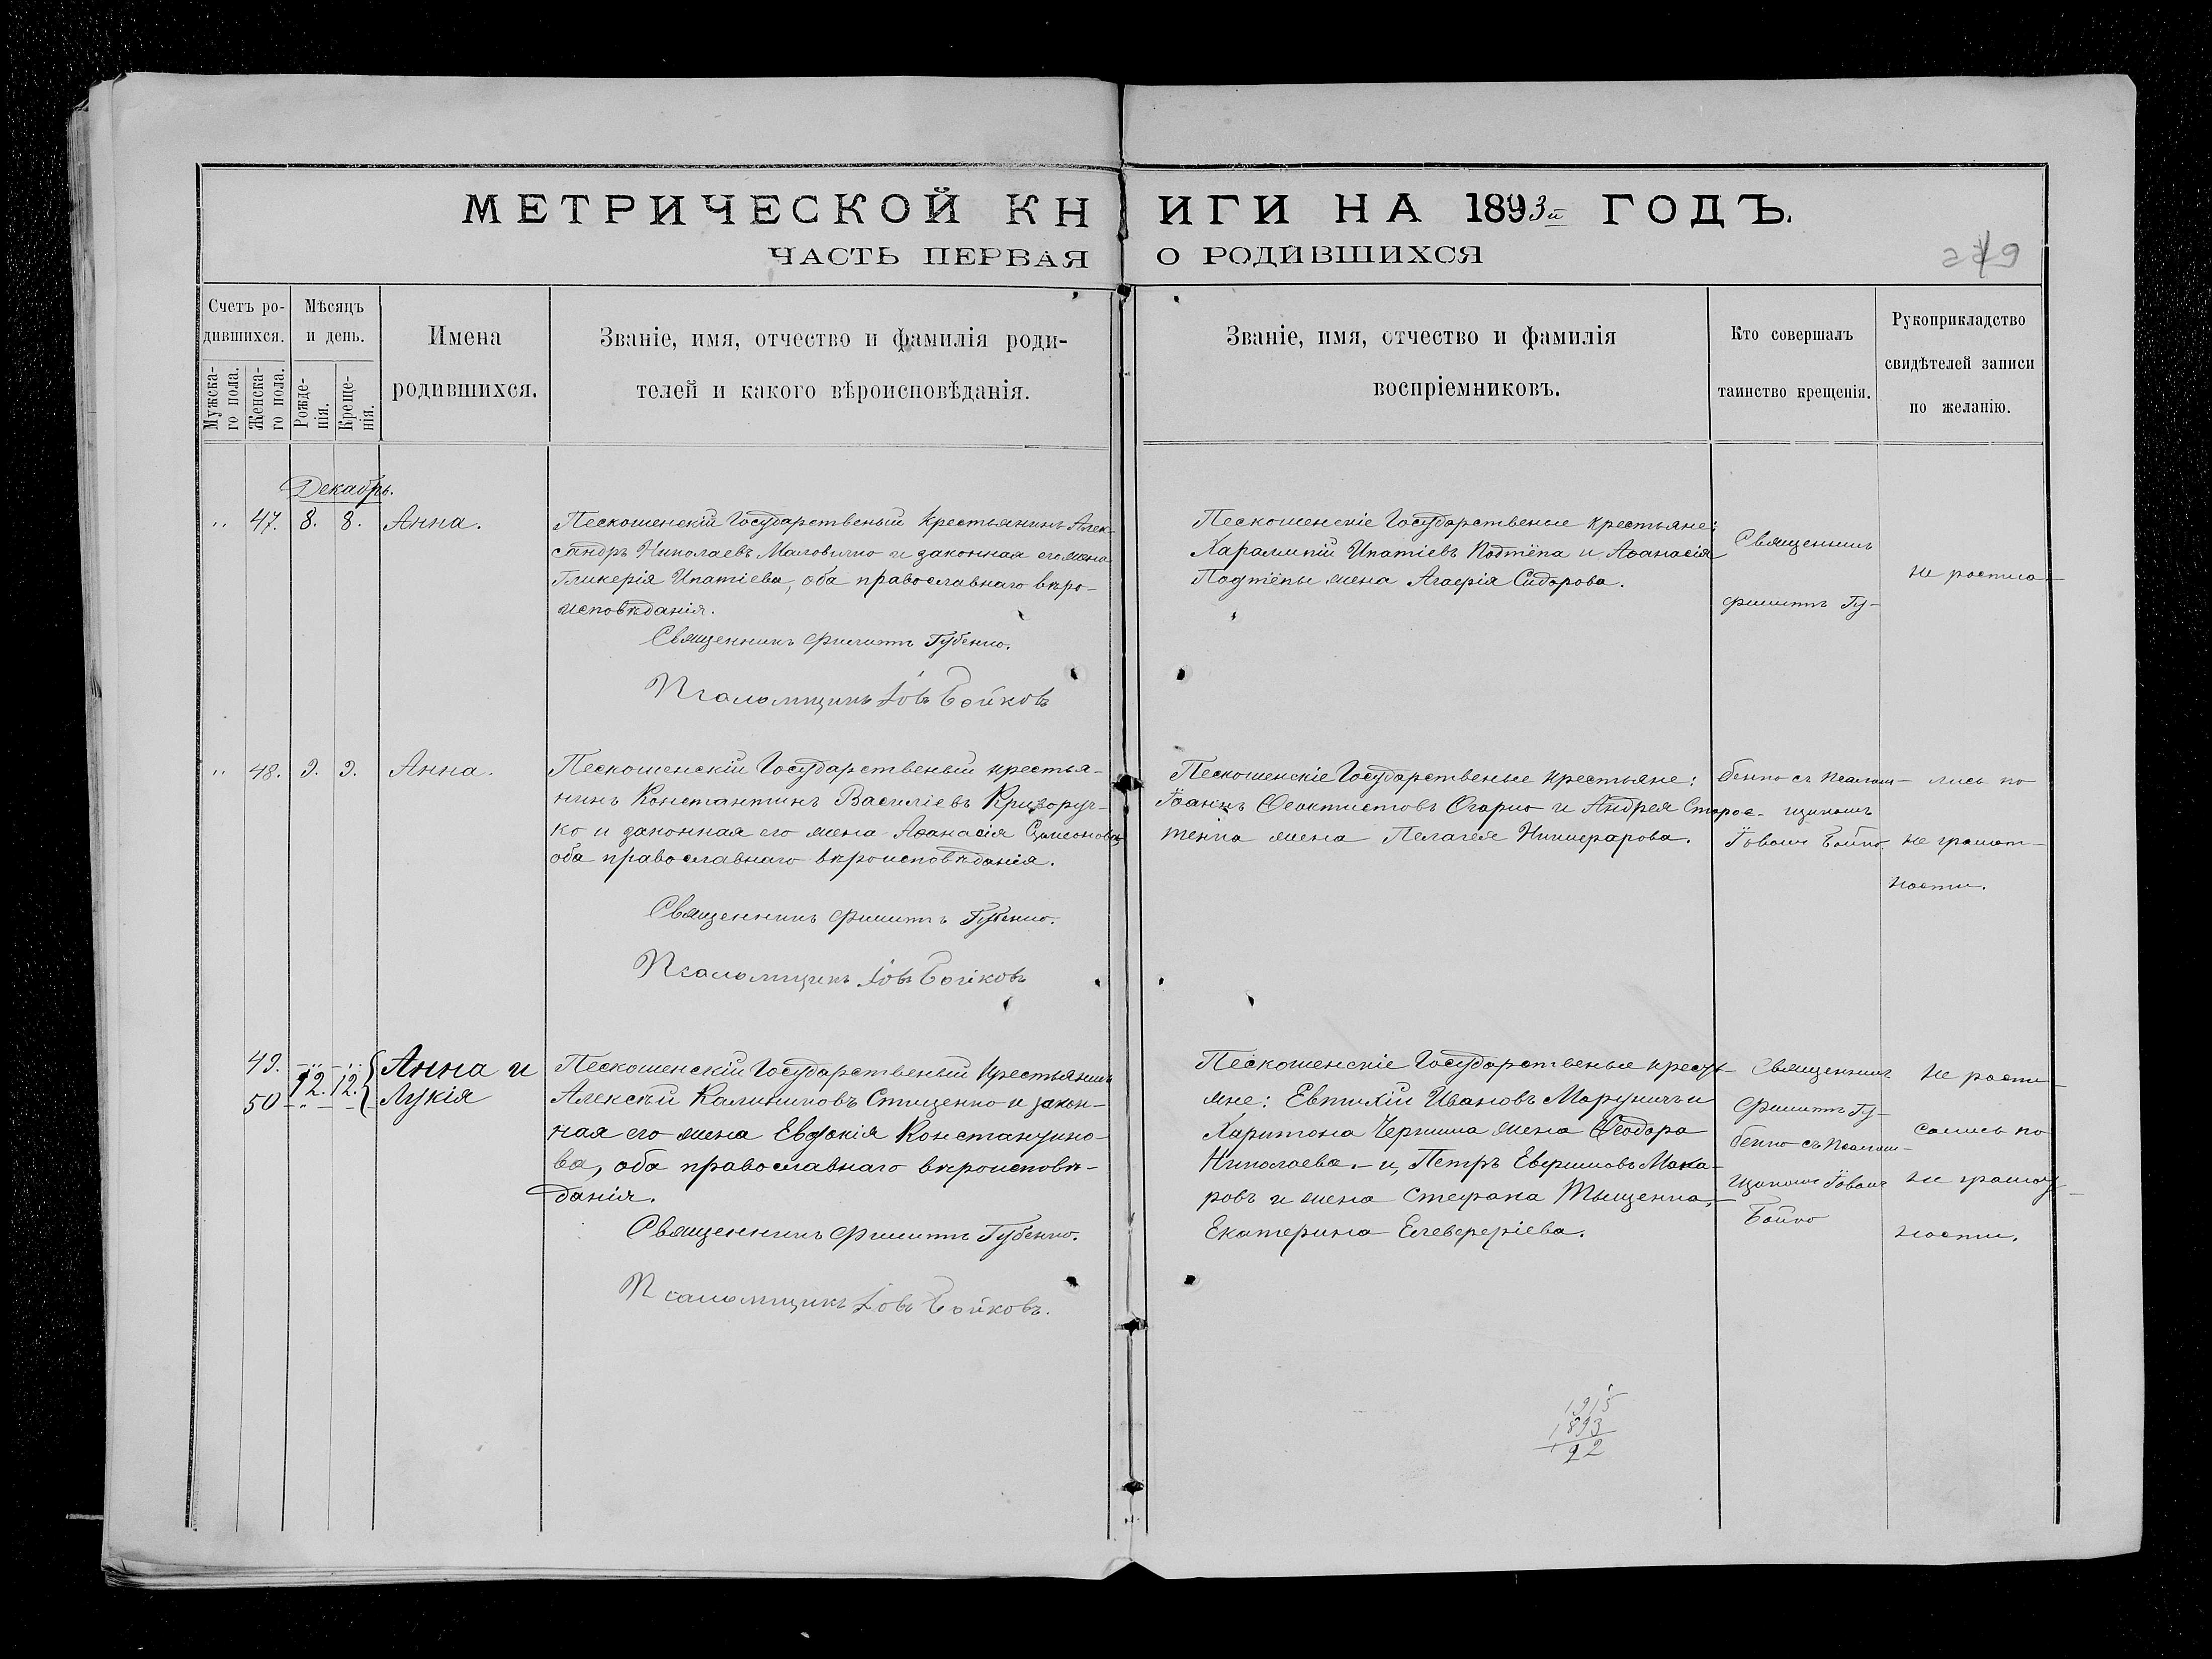 МЕТРИЧЕСКОЙ КНИГИ НА 1893й ГОДЪ.
ЧАСТЬ ПЕРВАЯ О РОДИВШИХСЯ
Счетъ ро-
дившихся.
Мужска-
го пола.
Женска-
го пола.
Мѣсяцъ
и день.
Рожде-
нія.
Креще-
нія.
Имена
родившихся.
Званіе, имя, отчество и фамилія роди-
телей и какого вѣроисповѣданія.
Званіе, имя, отчество и фамилія
воспріемниковъ.
Кто совершалъ
таинство крещенія.
Рукоприкладство
свидѣтелей записи
по желанію.
Декабрь.
„ 47. 8. 8. Анна.
Пескошенскій Государственый Крестьянинъ Алек-
сандръ Николаевъ Маловичко и законная его жена
Гликерія Ипатіева, оба православнаго вѣро-
исповѣданія.
Священникъ Филиппъ Губенко.
Псаломщикъ Іовъ Бойковъ
Пескошенскіе Государственые крестьяне:
Харалмпій Ипатіевъ Подтёпа и Аѳанасія
Подтёпы жена Агафія Сидорова.
Священникъ
Филиппъ Гу-
Не росписа-
„ 48. 9. 9. Анна.
Пескошенскій Государственый крестья-
нинъ Константинъ Василіевъ Криворуч-
ко и законная его жена Аѳанасія Симеонова
оба православнаго вѣроисповѣданія.
Священникъ Филиппъ Губенко.
Псаломщикъ Іовъ Бойковъ
Пескошенскіе Государственые крестьяне:
Іоаннъ Ѳеоктистовъ Огарко и Андрея Старос-
тенка жена Пелагея Никифорова.
бенко съ Псалом-
щикомъ
Іовомъ Бойко.
лись по
не грамот-
ности.
49.
50
12. 12.
Анна и
Лукія
Пескошенскій Государственый Крестьянинъ
Алексѣй Калиниковъ Стиценко и закон-
ная его жена Евдокія Константино-
ва, оба православнаго вѣроисповѣ-
данія.
Священникъ Филиппъ Губенко.
Псаломщикъ Іовъ Бойковъ.
Пескошенскіе Государственые крестья-
яне: Евтихій Ивановъ Маруничъ и
Харитона Черниша жена Ѳеодора
Николаева. – и, Петръ Евфимовъ Мака-
ровъ и жена Стефана Тыщенка,
Екатерина Елевферіева.
Священникъ
Филиппъ Гу-
бенко съ Псалом-
щикомъ Іовомъ
Бойко
Не роспи-
сались по
не грамот-
ности.
1915
1893
22